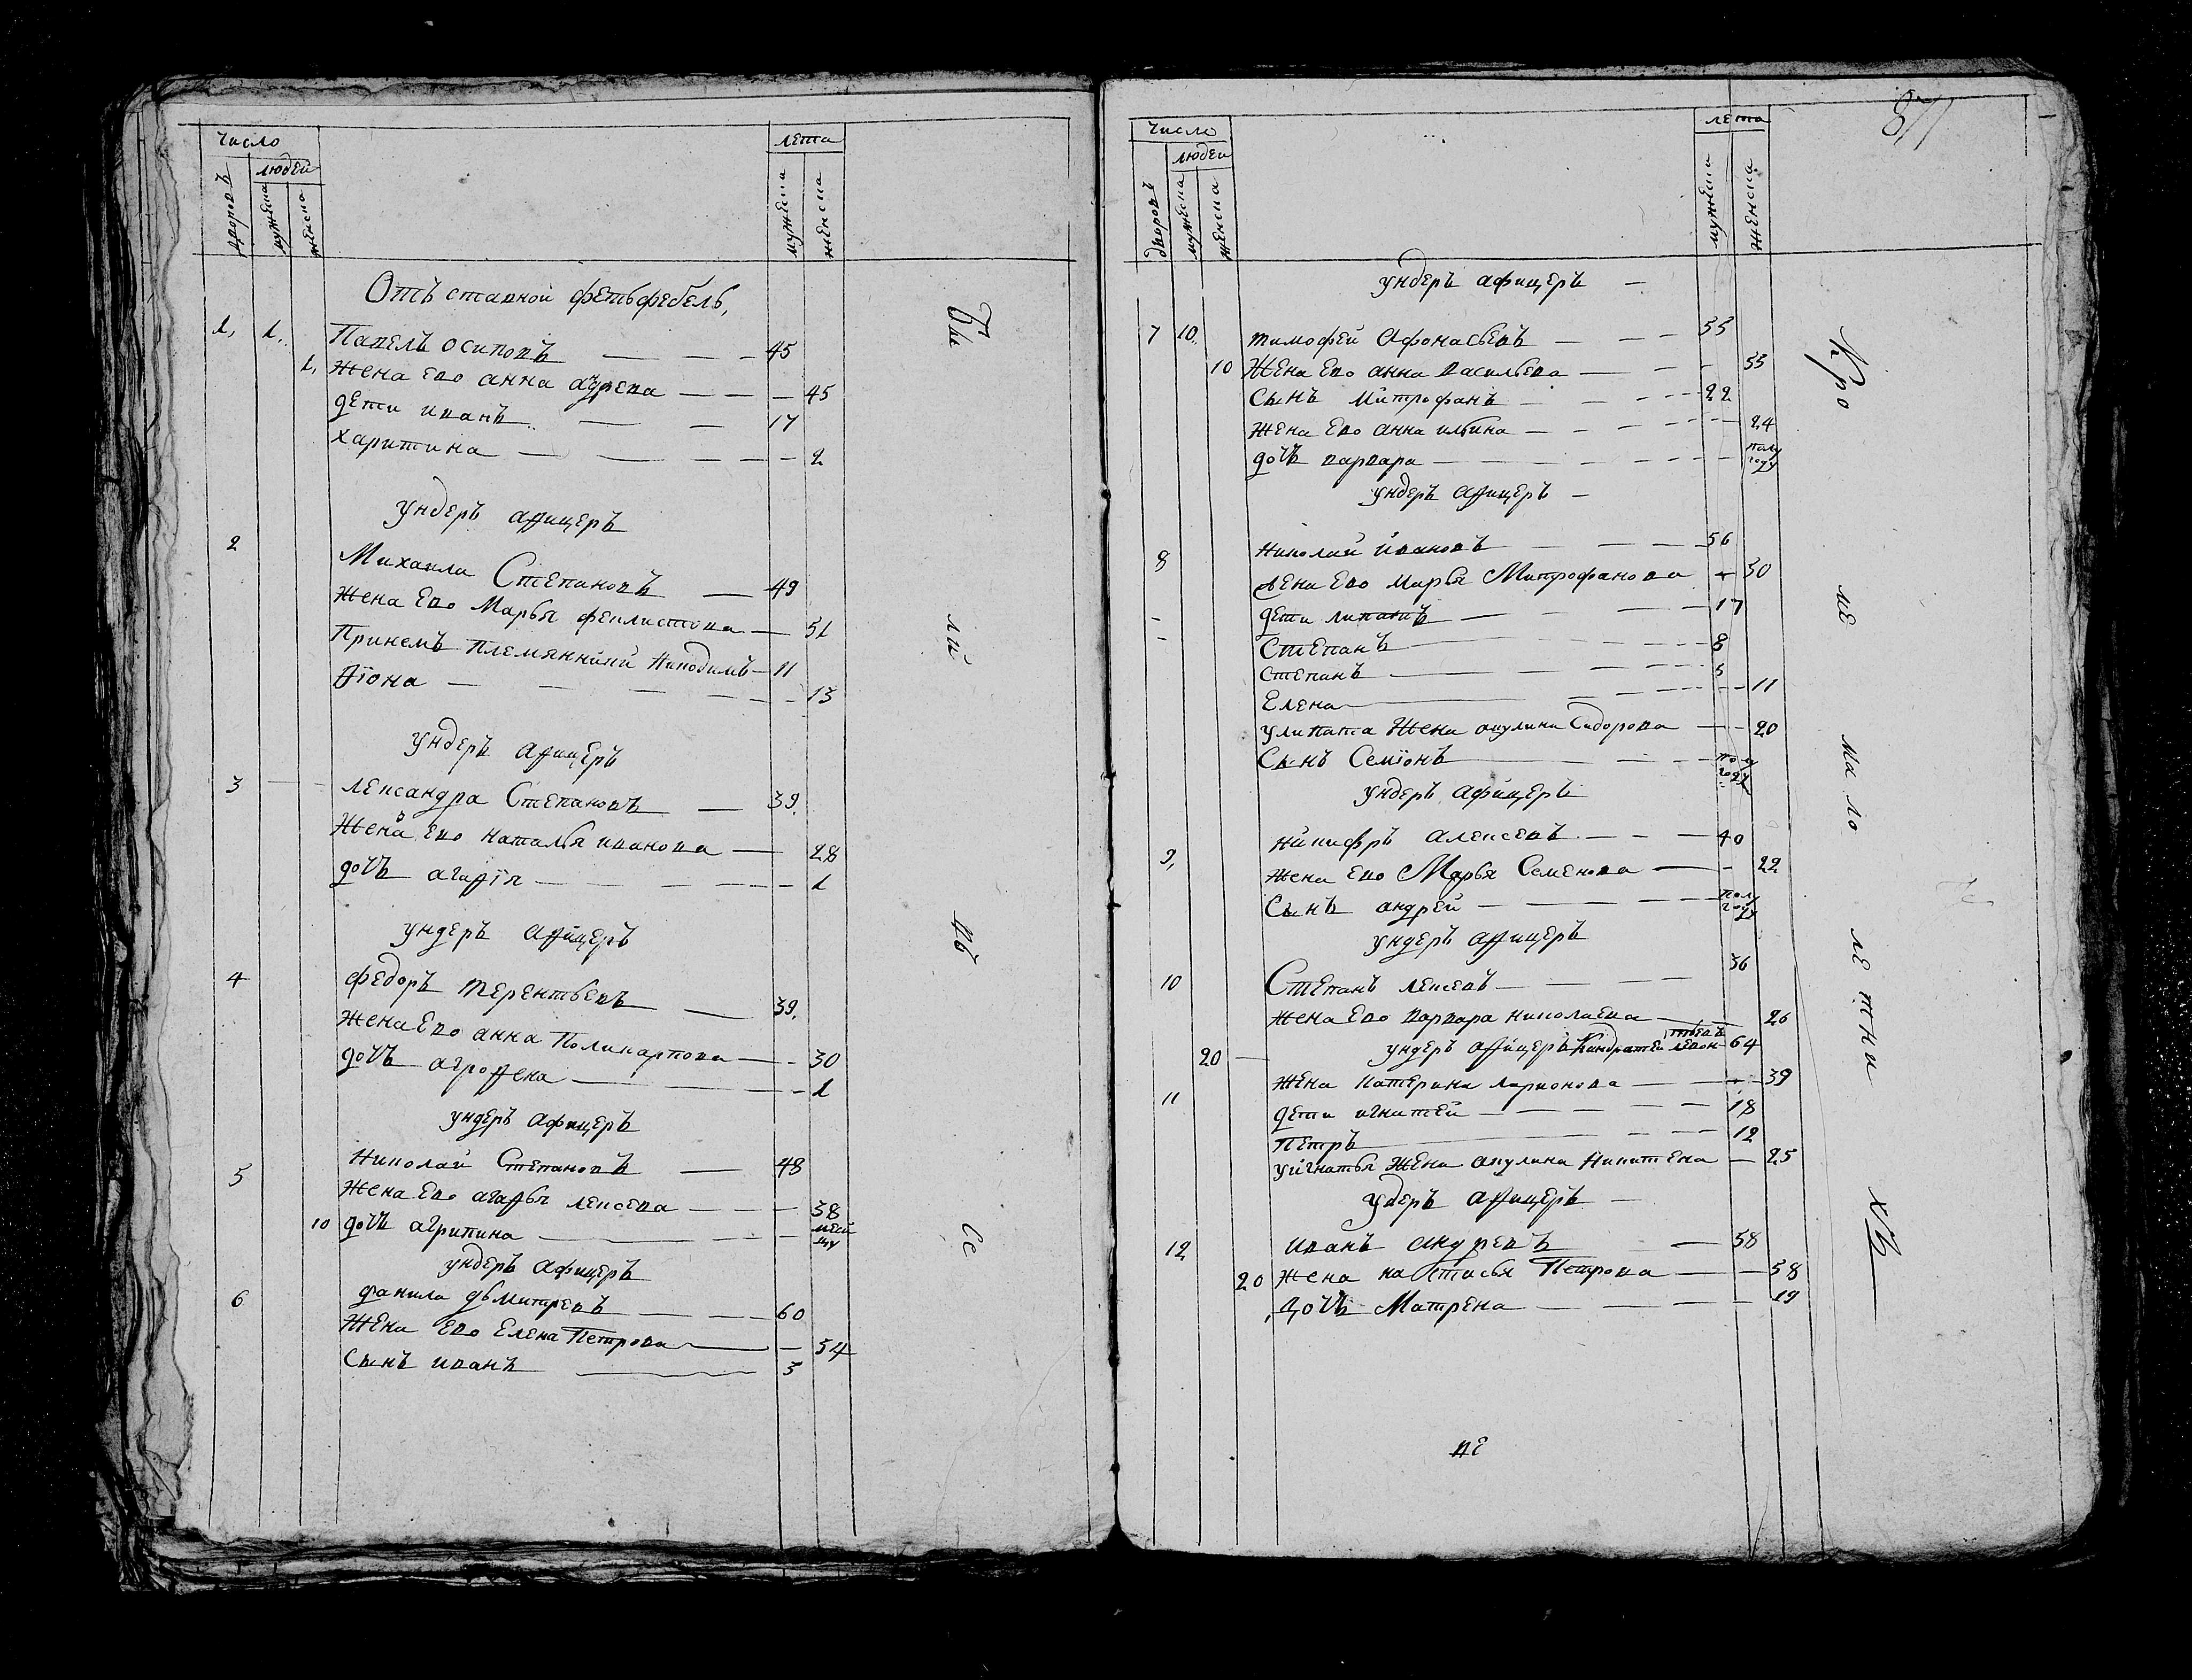 число
лета
людей
дворовъ
мужеска
женска
мужеска
женска
Отъставной фетьфебель,
1, 1. Павелъ осиповъ — 45
1, жена ево анна адрева — 45
дети иванъ — 17
харитина — 2
ундеръ афицеръ
2 Михаила Степановъ — 49
жена ево Марья феклистова — 51
Принемъ племянники Никодимъ — 11
— 13
ундеръ афицеръ
3 лександра Степановъ — 39.
жена ево наталья иванова — 28
дочь агафїя — 1
ундеръ афицеръ
4 федоръ терентьевъ — 39.
жена ево анна Поликарпова — 30
дочь агрофена — 1
ундеръ афицеръ
5 николай Степановъ — 48
жена ево агафья лексева — 38
10 дочь агрипина —
ундеръ афицеръ
6 данила дьмитревъ — 60
жена ево Елена Петрова — 54
сынъ иванъ — 3
Бы
ли
вь
се
число
лета
людеи
дворовъ
мужеска
женска
мужеска
женска
ундеръ афицеръ —
7 10. тимофеи Афонасьевъ — 55
10 жена ево анна васильева — 55
сынъ митрофанъ — 22
жена ево анна ильина — 24
дочь варвара — полу году
ундеръ афицеръ —
8 николай ивановъ — 56
жена ево марья Митрофанова — 50
дети — 17
Степанъ — 8
степанъ — 5
Елена — 11
жена акулина Сидорова — 20
сынъ Семїонъ — полу году
ундеръ афицеръ
9, никифръ алексевъ — 40
жена ево Марья Семенова — 22
сынъ андрей — полу году
ундеръ афицеръ
10 Степанъ лексевъ — 36
жена ево варвара николаева — 26
20 — ундеръ афицеръ Кандратей левонтьевъ 64
жена катерина ларионова — 39
11 дети игнатей — 18
петръ — 12
уигнатья жена акулина никитена — 25
ундеръ афицеръ —
12 иванъ андревъ — 58
20 жена настасья Петрова — 58
дочь Матрена — 19
Кро
ме
мало
летни
хъ
ве